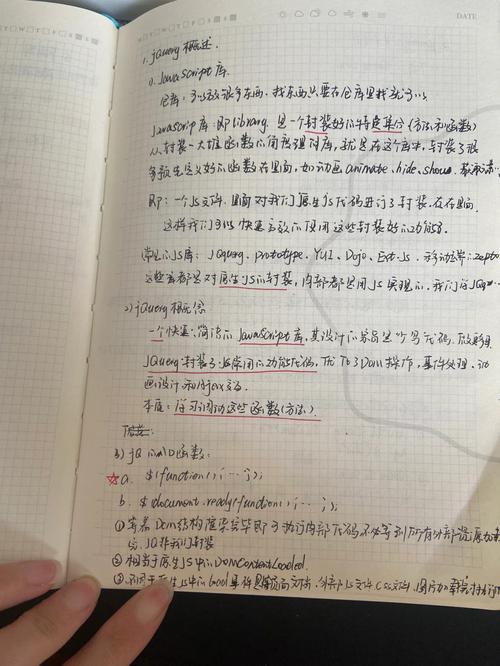 DATE
1. jQuery 概述.
1). JavaScript 库.
仓库: 可以放很多东西, 找东西只要在仓库里找就可以
JavaScript 库: 即 library, 是一个封装好的特定集合(方法和函数)
从封装一大堆函数的角度理解库, 就是在这个库中, 封装了很
多预先定义好的函数在里面, 如动画 animate、hide、show.
即: 一个JS文件, 里面对我们原生js代码进行了封装, 存在里面.
这样我们可以快速高效的使用这些封装好的功能了.
常见的JS库: JQuery、Prototype、YUI、Dojo、Ext Js、移动端zepto
这些库都是对原生JS的封装, 内部都是用JS实现的, 我们学JQ
2) jQuery 概念
一个快速、简洁的JavaScript库, 其设计的宗旨是
JQuery封装了JS常用的功能代码, 优化了Dom操作, 事件处理、动
画设计和Ajax交互.
本质: 学习调用这些函数(方法).
3) jQ 的入口函数:
☆a. $(function(){ … });
b. $document.ready(function(){ … });
① 等着Dom结构渲染完毕即可执行内部代码不必等到所有外部资源加载
完, JQ帮我们封装
② 相当于原生JS中的DOMContentLoaded.
③ 不同于原生JS中的load 是等页面文档、外部JS文件、css文件、图片加载完